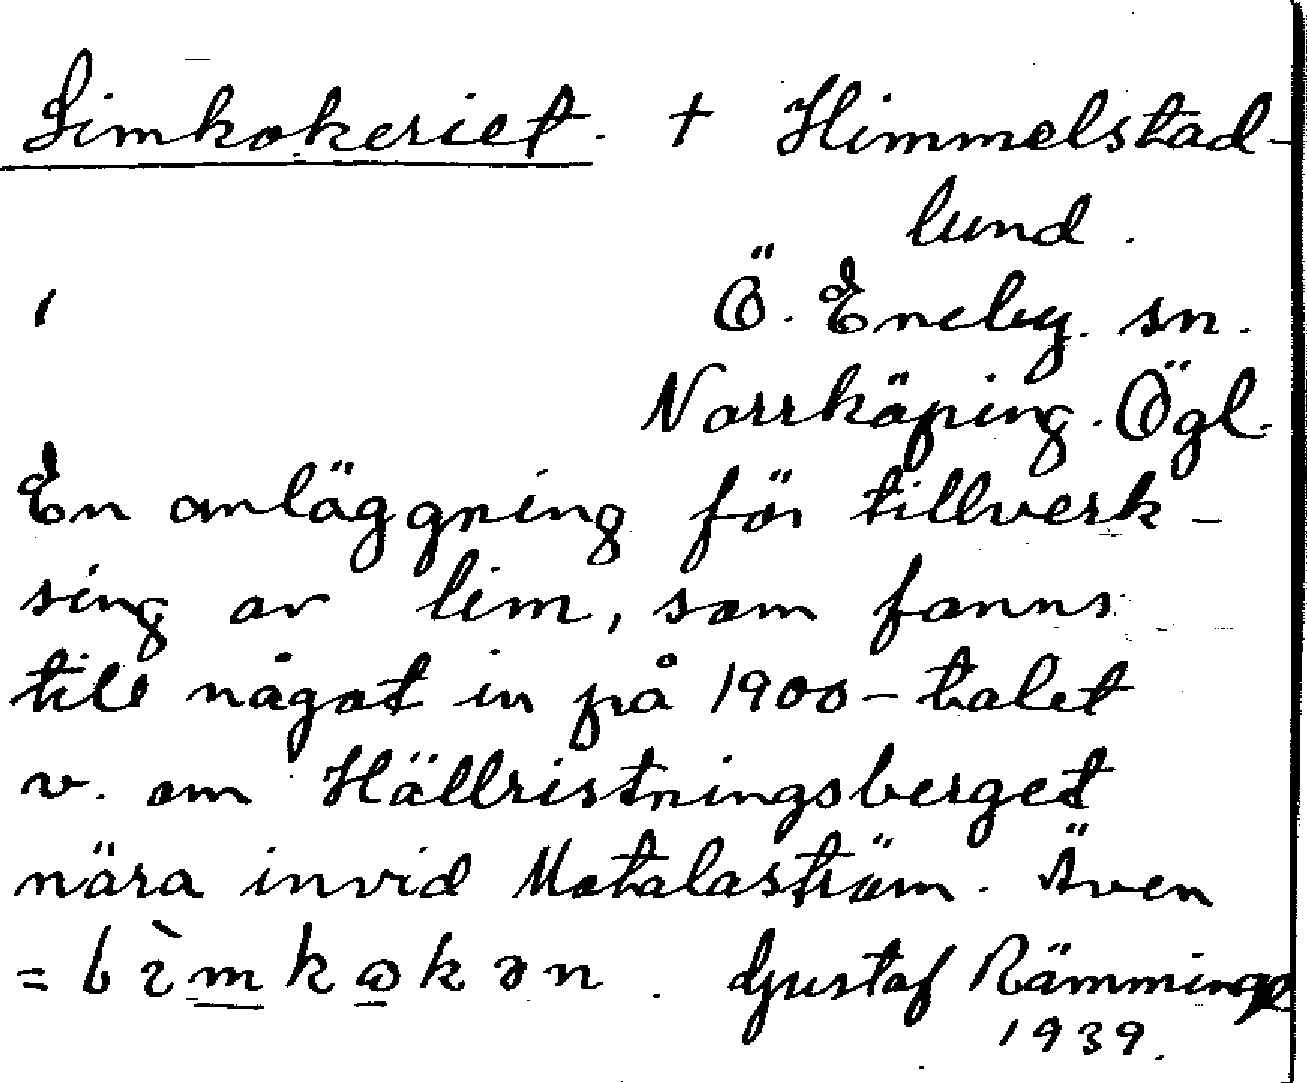 Limkokeriet. + Himmelstad-
lund.
Ö. Eneby. sn.
Norrköping. Ögl.
En anläggning för tillverk-
sing av lim, som fanns
till något in på 1900-talet
v. om Hällristningsberget
nära invid Motalaström. Även
= lìmkokən. Gustaf Rämminge
1939.